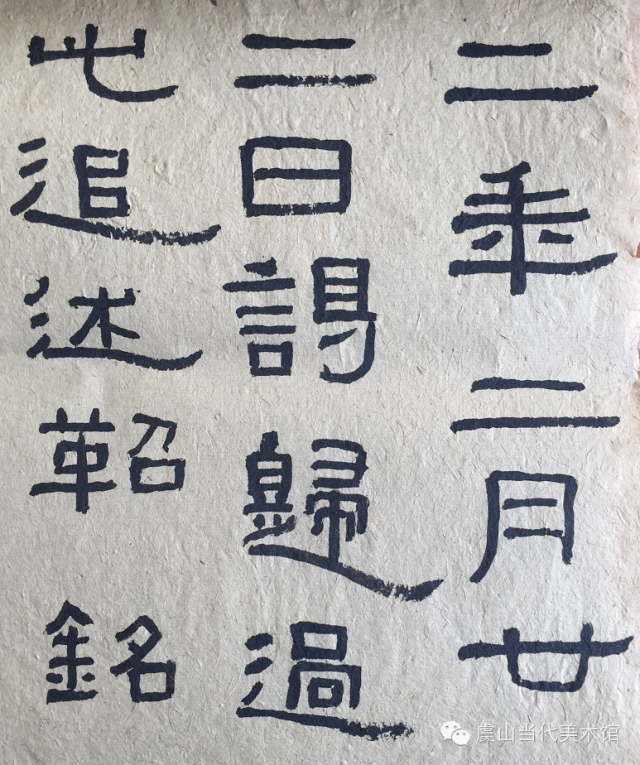 二年二月廿
二日謁歸過
此追述鞀銘
虞山当代美术馆